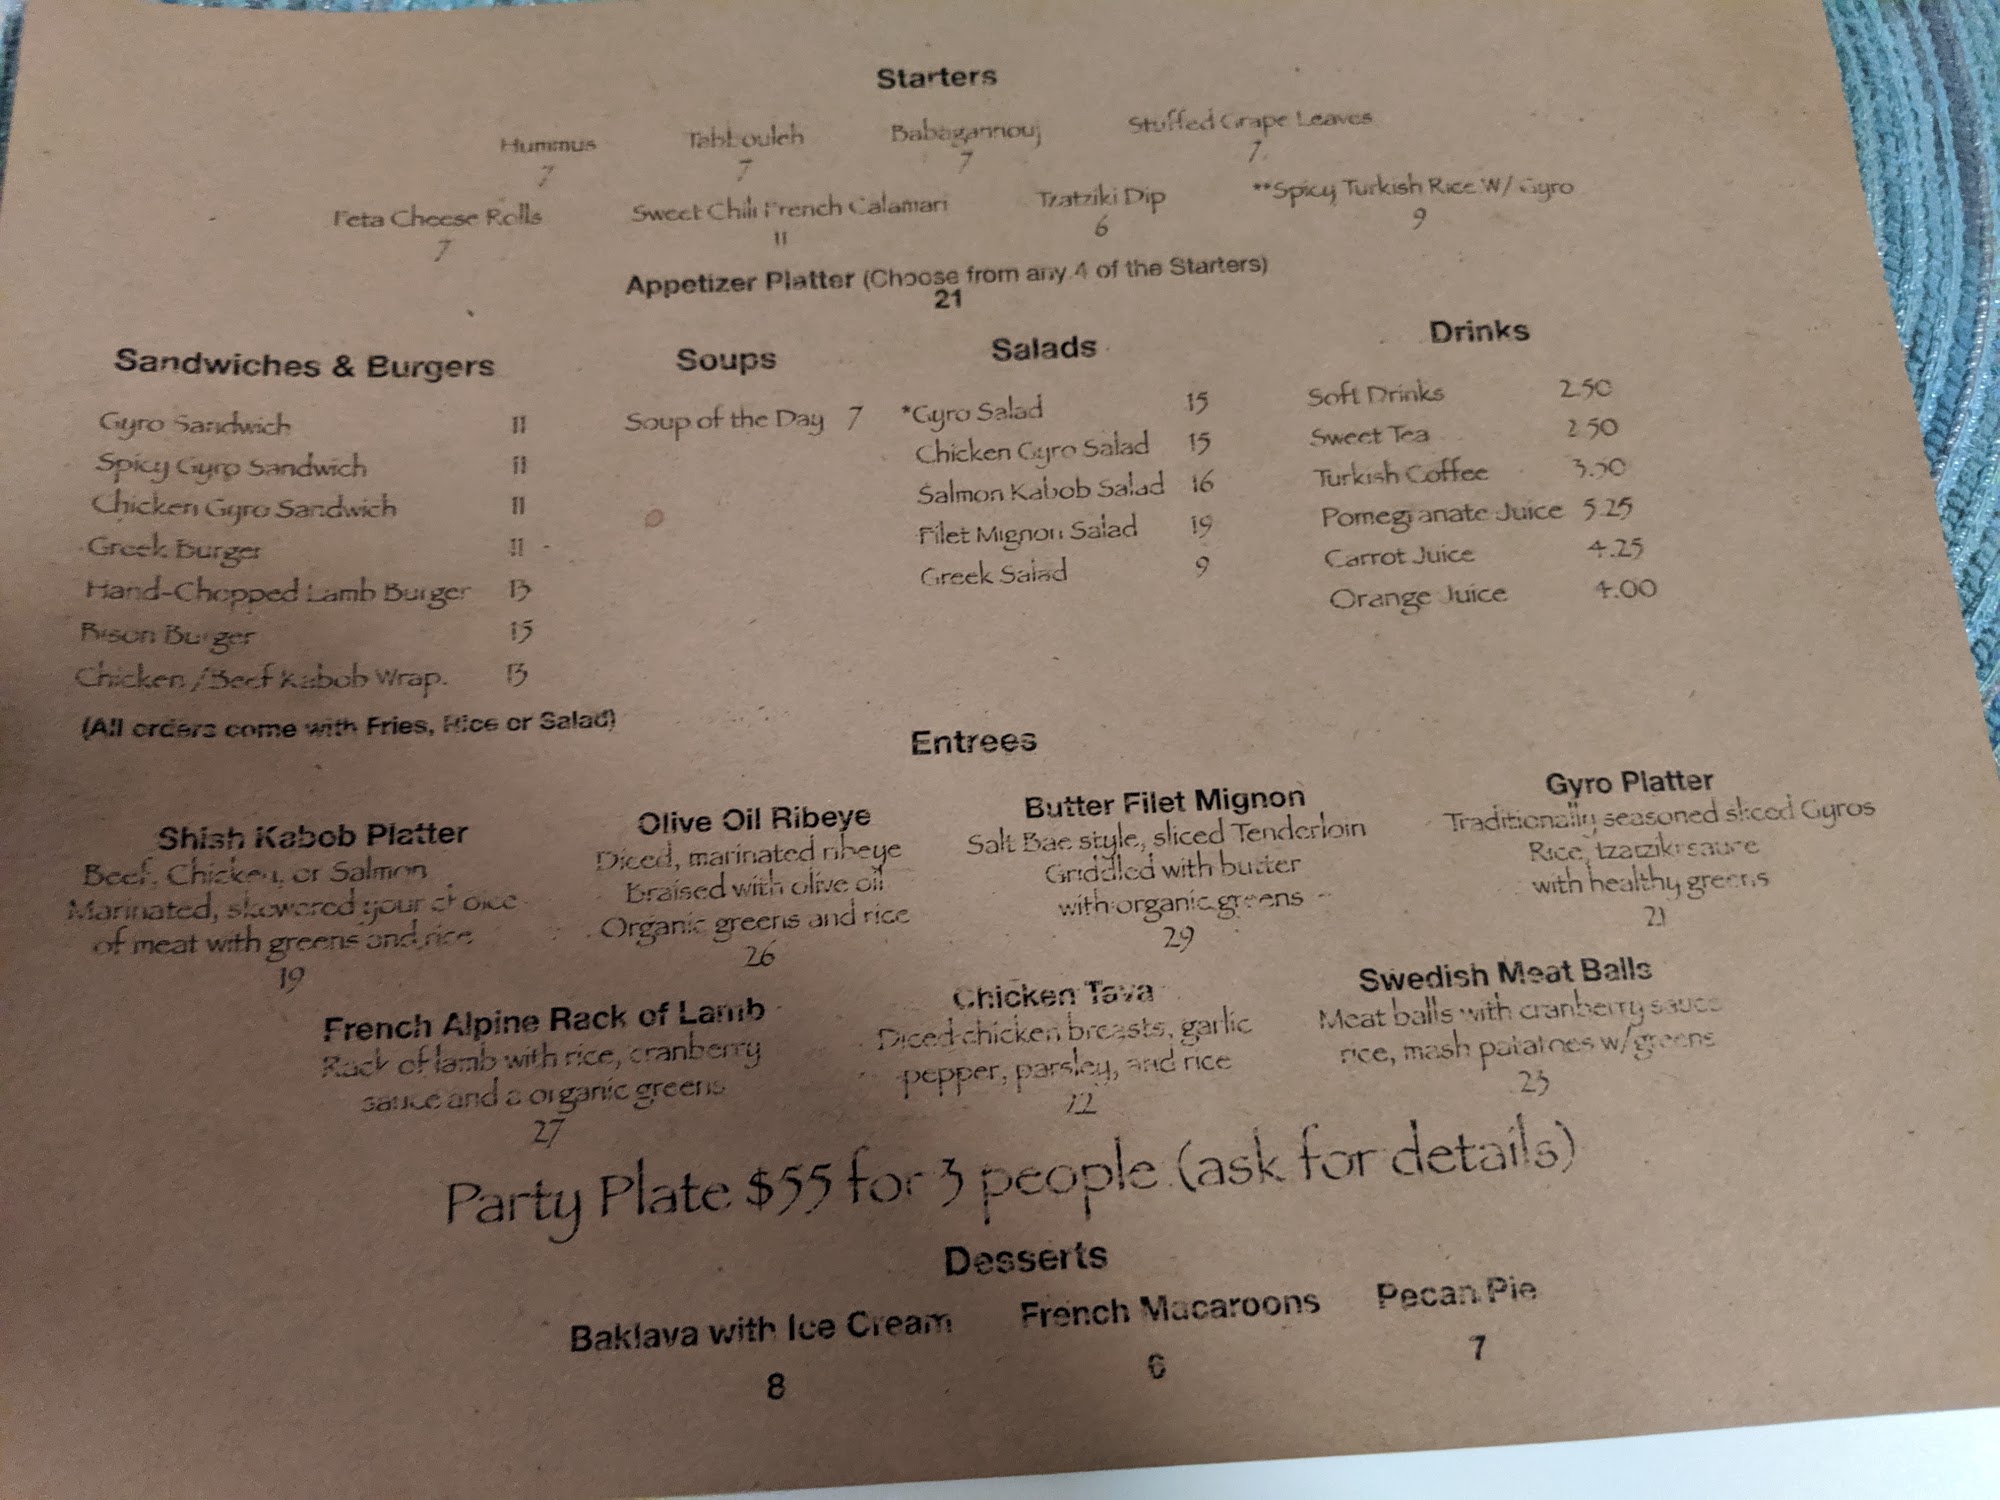 Starters
Hummus Tabbouleh Babagannouj Stuffed Grape Leaves
7 7 7 7
Feta Cheese Rolls Sweet Chili French Calamari Tzatziki Dip **Spicy Turkish Rice W/ Gyro
7 11 6 9
Appetizer Platter (Choose from any 4 of the Starters)
21
Sandwiches & Burgers
Gyro Sandwich 11
Spicy Gyro Sandwich 11
Chicken Gyro Sandwich 11
Greek Burger 11
Hand-Chopped Lamb Burger 13
Bison Burger 15
Chicken/Beef Kabob Wrap. 13
(All orders come with Fries, Rice or Salad)
Soups
Soup of the Day 7
Salads
*Gyro Salad 15
Chicken Gyro Salad 15
Salmon Kabob Salad 16
Filet Mignon Salad 19
Greek Salad 9
Drinks
Soft Drinks 2.50
Sweet Tea 2.50
Turkish Coffee 3.50
Pomegranate Juice 5.25
Carrot Juice 4.25
Orange Juice 4.00
Entrees
Shish Kabob Platter
Beef, Chicken, or Salmon
Marinated, skewered your choice
of meat with greens and rice
19
Olive Oil Ribeye
Diced, marinated ribeye
Braised with olive oil
Organic greens and rice
26
Butter Filet Mignon
Salt Bae style, sliced Tenderloin
Griddled with butter
with organic greens
29
Gyro Platter
Traditionally seasoned sliced Gyros
Rice, tzatziki sauce
with healthy greens
21
French Alpine Rack of Lamb
Rack of lamb with rice, cranberry
sauce and a organic greens
27
Chicken Tava
Diced chicken breasts, garlic
pepper, parsley, and rice
22
Swedish Meat Balls
Meat balls with cranberry sauce
rice, mash patatoes w/greens
23
Party Plate $55 for 3 people (ask for details)
Desserts
Baklava with Ice Cream French Macaroons Pecan Pie
8 6 7